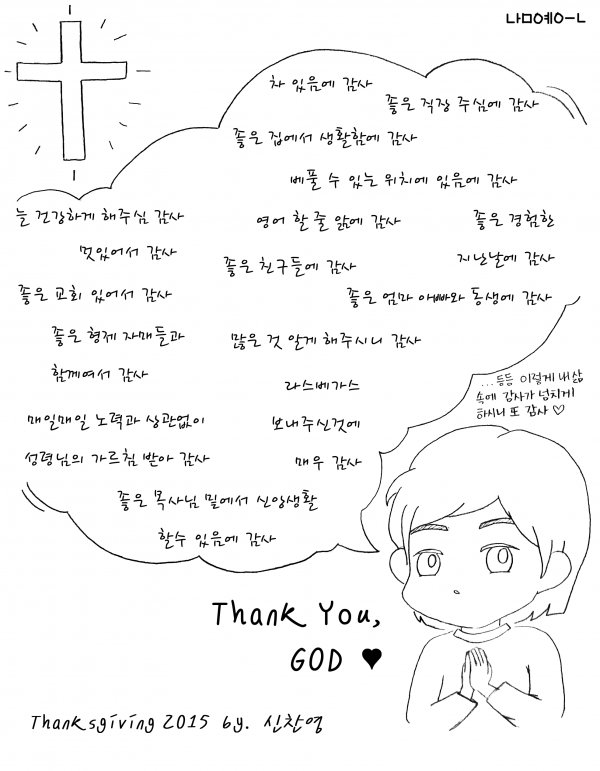 나ㅁ예ㅇㅡㄴ
차 있음에 감사
좋은 직장 주심에 감사
좋은 집에서 생활함에 감사
베풀 수 있는 위치에 있음에 감사
늘 건강하게 해주심 감사
영어 할 줄 앎에 감사
좋은 경험한
지난날에 감사
멋있어서 감사
좋은 친구들에 감사
좋은 교회 있어서 감사
좋은 엄마 아빠와 동생에 감사
좋은 형제 자매들과
함께여서 감사
많은 것 알게 해주시니 감사
라스베가스
보내주신것에
매우 감사
매일매일 노력과 상관없이
성령님의 가르침 받아 감사
좋은 목사님 밑에서 신앙생활
할수 있음에 감사
...등등 이렇게 내 삶
속에 감사가 넘치게
하시니 또 감사 ♡
Thank You,
GOD ♥
Thanksgiving 2015 by. 신찬영